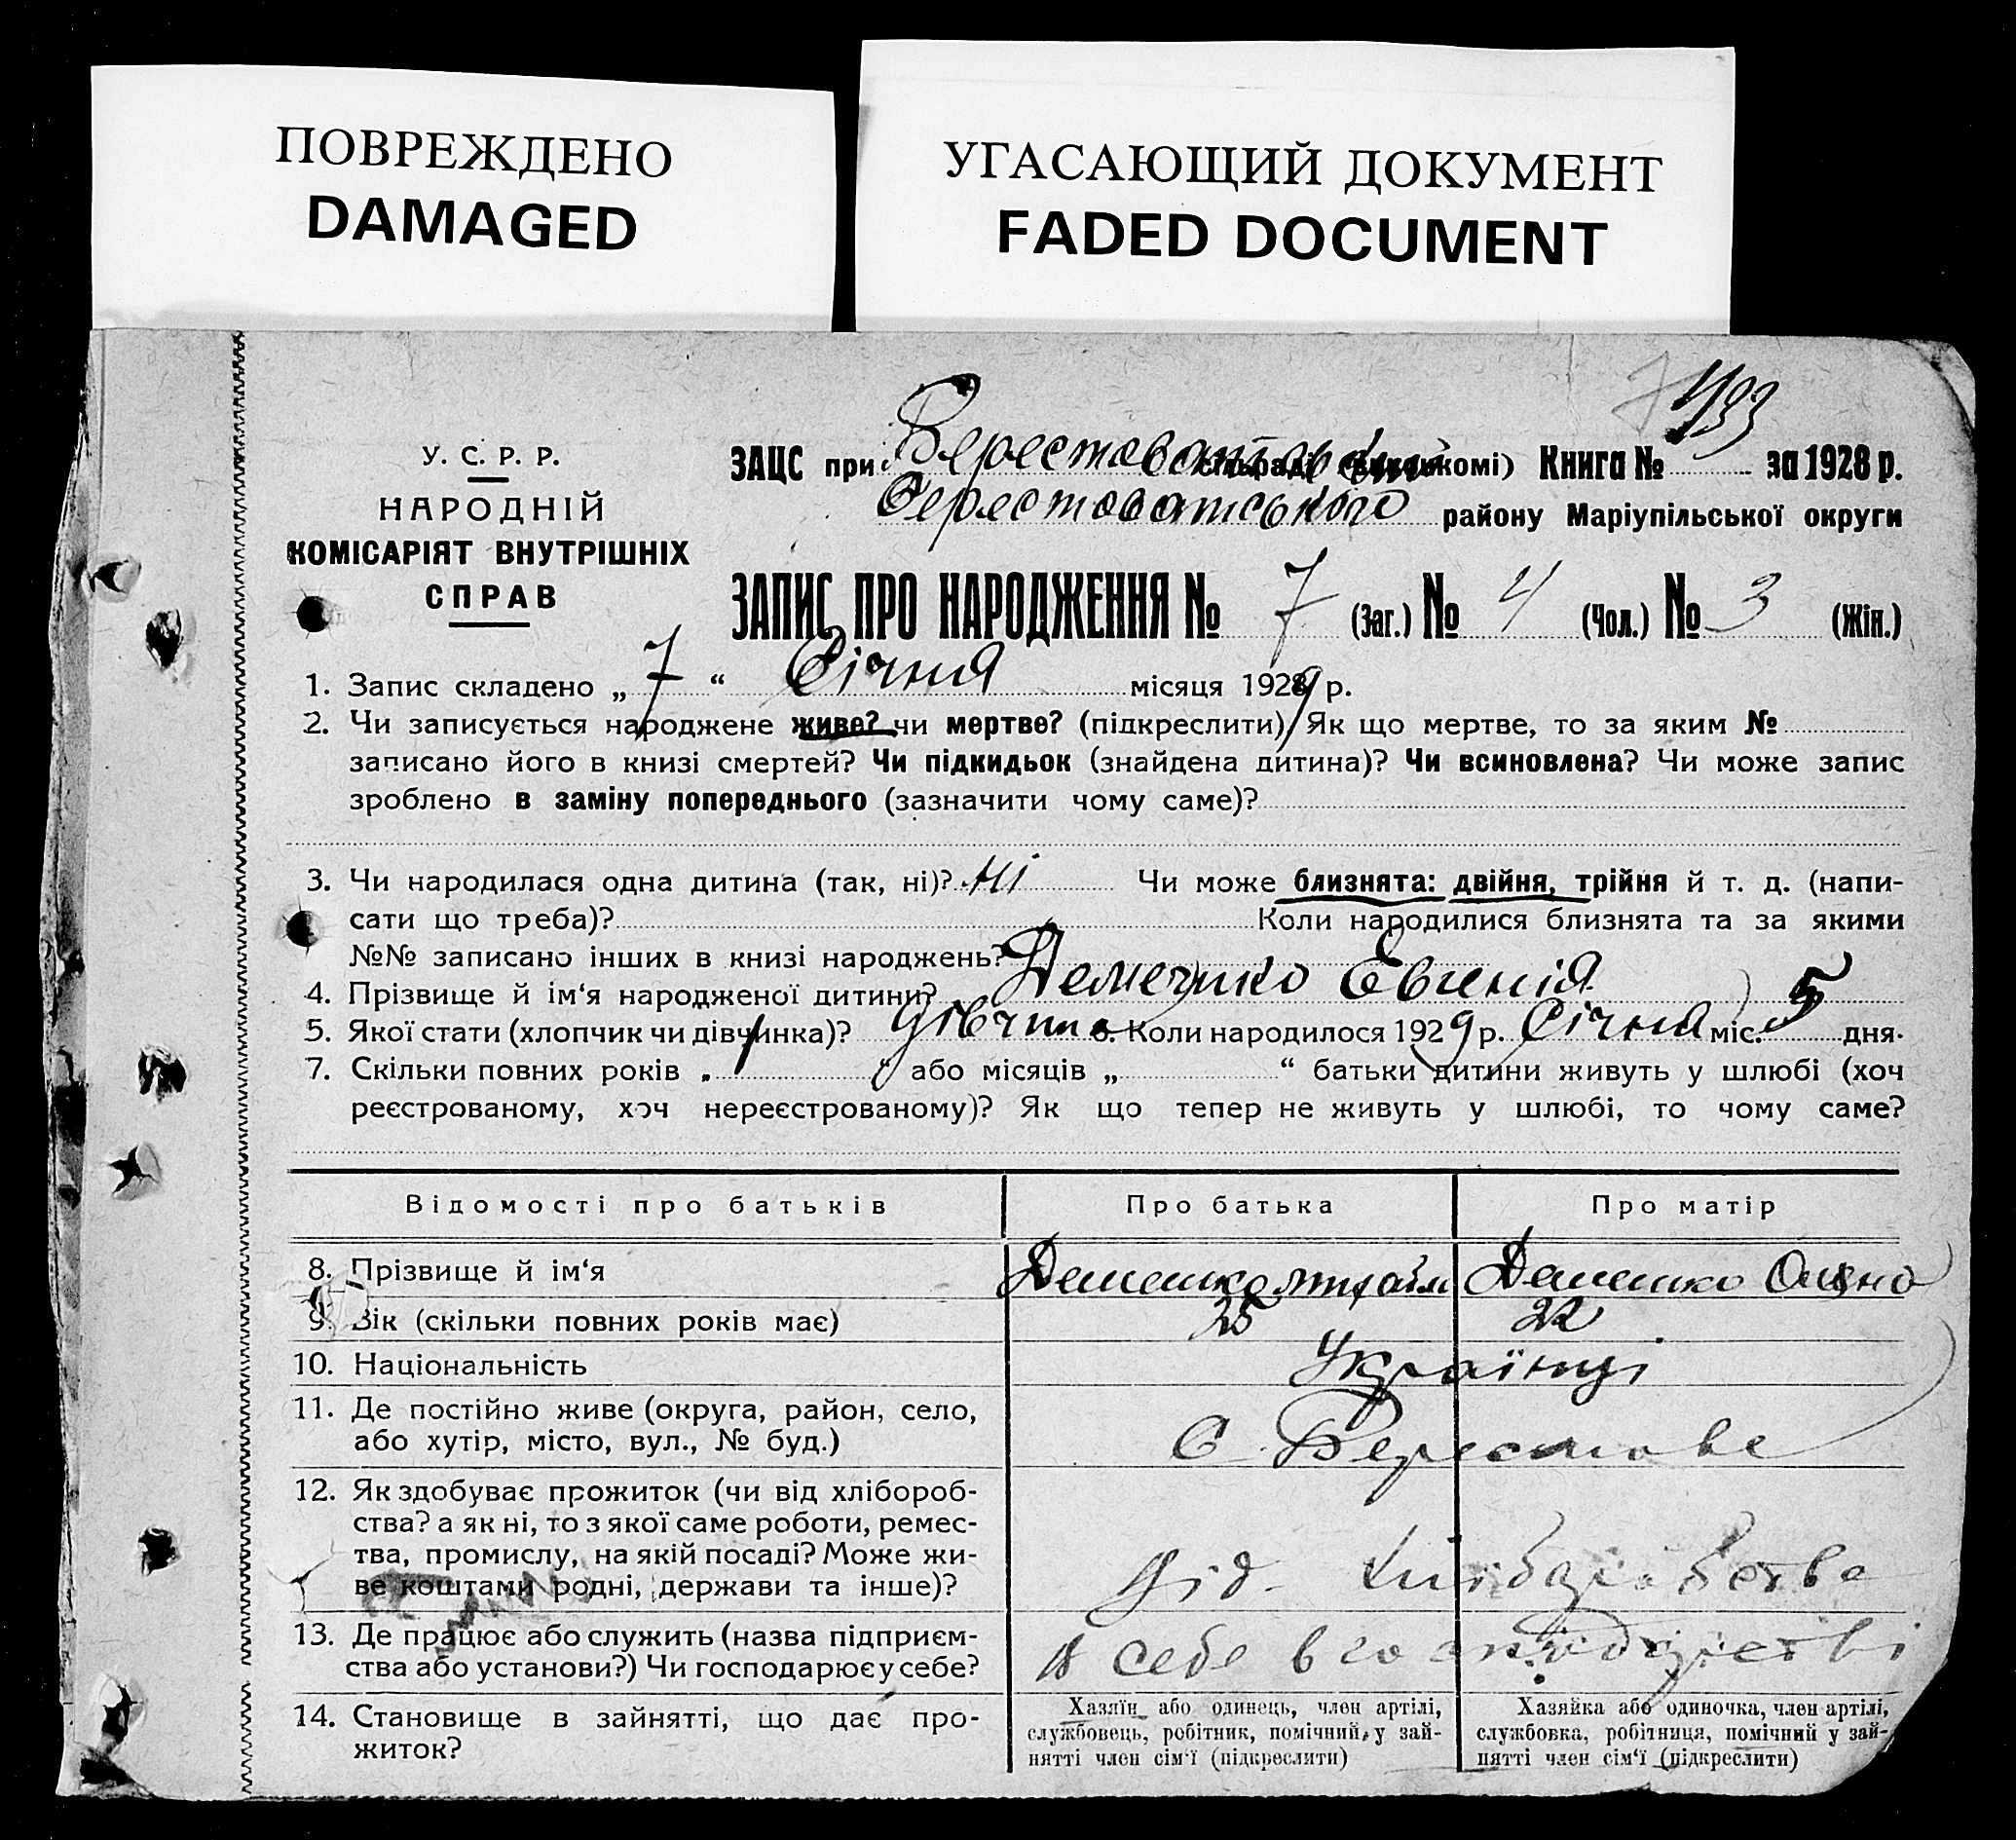 ПОВРЕЖДЕНО
DAMAGED
УГАСАЮЩИЙ ДОКУМЕНТ
FADED DOCUMENT
7
У. С. Р. Р.
НАРОДНІЙ
КОМІСАРІЯТ ВНУТРІШНІХ
СПРАВ
ЗАЦС при сільраді (викомі) Книга № за 1928 р.
Берестоватського району Маріупільської округи
ЗАПИС ПРО НАРОДЖЕННЯ № 7 (Заг.) № 4 (Чол.) № 3 (Жін.)
1. Запис складено „ 7 “ Січня місяця 1929 р.
2. Чи записується народжене живе? чи мертве? (підкреслити) Як що мертве, то за яким №
записано його в книзі смертей? Чи підкидьок (знайдена дитина)? Чи всиновлена? Чи може запис
зроблено в заміну попереднього (зазначити чому саме)?
3. Чи народилася одна дитина (так, ні)? Ні Чи може близнята: двійня, трійня й т. д. (напи-
сати що треба)? Коли народилися близнята та за якими
№№ записано інших в книзі народжень?
4. Прізвище й ім‘я народженої дитини? Демешко Евгенія
5. Якої стати (хлопчик чи дівчинка)? Коли народилося 1929 р. Січня міс. 5 дня.
7. Скільки повних років „ 1 “ або місяців „ “ батьки дитини живуть у шлюбі (хоч
реєстрованому, хоч нереєстрованому)? Як що тепер не живуть у шлюбі, то чому саме?
Відомості про батьків Про батька Про матір
8. Прізвище й ім‘я Демешко Михайло Демешко
9. Вік (скільки повних років має) 25 22
10. Національність Українці
11. Де постійно живе (округа, район, село,
або хутір, місто, вул., № буд.) С. Берестове
12. Як здобуває прожиток (чи від хлібороб-
ства? а як ні, то з якої саме роботи, ремес-
тва, промислу, на якій посаді? Може жи-
ве коштами родні, держави та інше)? Від хліборобства
13. Де працює або служить (назва підприєм-
ства або установи?) Чи господарює у себе? У себе в господарстві
14. Становище в зайнятті, що дає про-
житок?
Хазяїн або одинець, член артілі,
службовець, робітник, помічний у зай-
нятті член сім‘ї (підкреслити)
Хазяйка або одиночка, член артілі,
службовка, робітниця, помічний у зай-
нятті член сім‘ї (підкреслити)